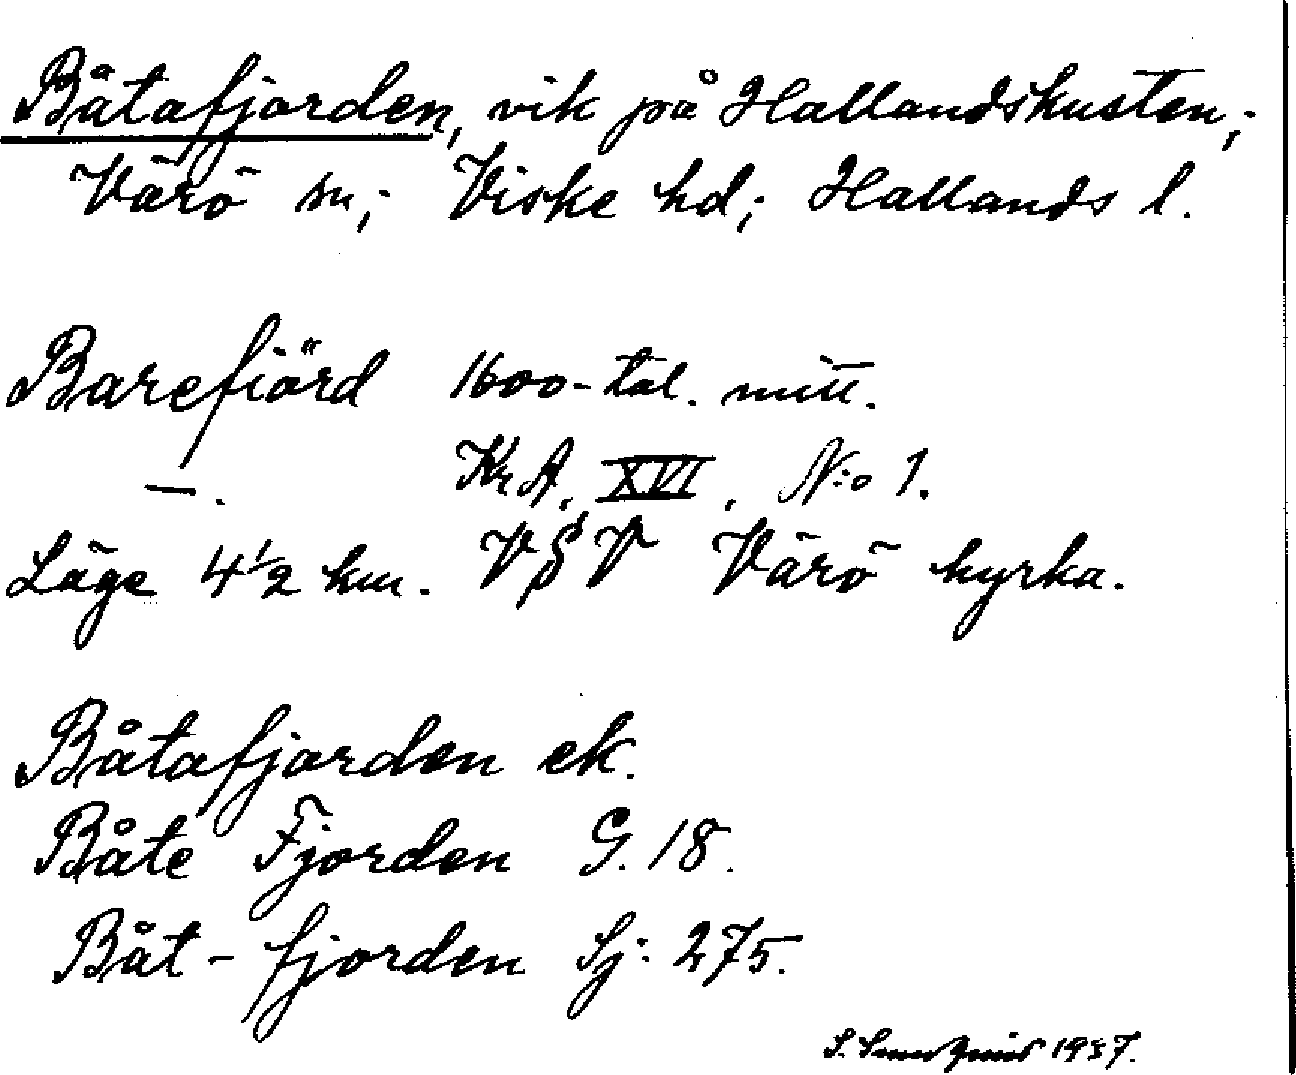 Båtafjorden, vik på Hallandskusten;
Värö sn; Viske hd; Hallands l.
Barefiörd 1600-tal. mitt.
—. Kr A, XVI, N:o 1.
Läge 4½ km. V§V Värö kyrka.
Båtafjorden ek.
Båte Fjorden G. 18.
Båt-fjorden Sj: 275.
S. 1937.